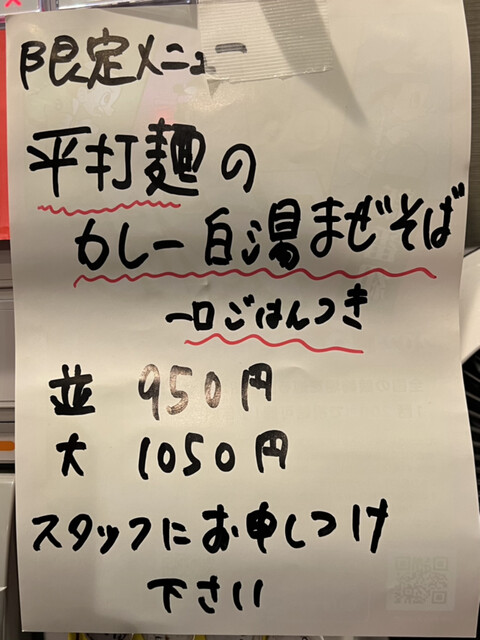 限定メニュー
平打麺の
カレー白湯まぜそば
一口ごはんつき
並 950円
大 1050円
スタッフにお申しつけ
下さい